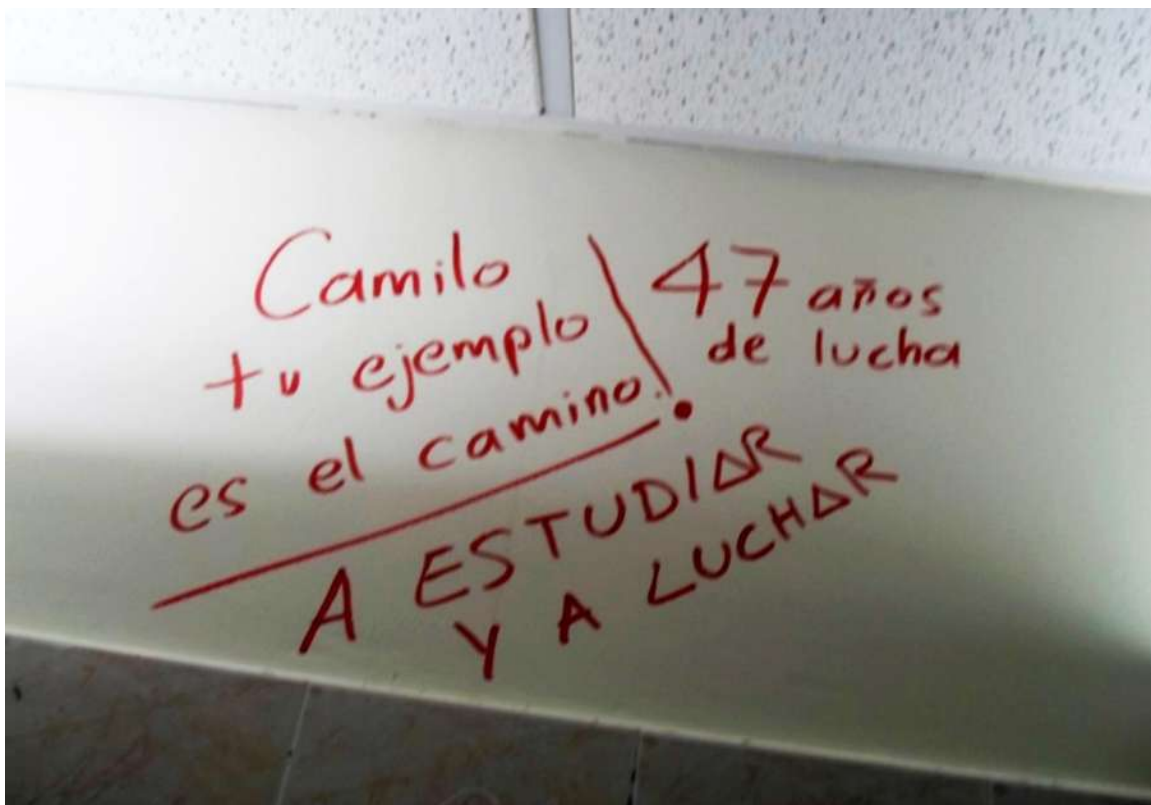 Camilo
tu ejemplo
es el camino.
47 años
de lucha
A ESTUDIAR
Y A LUCHAR